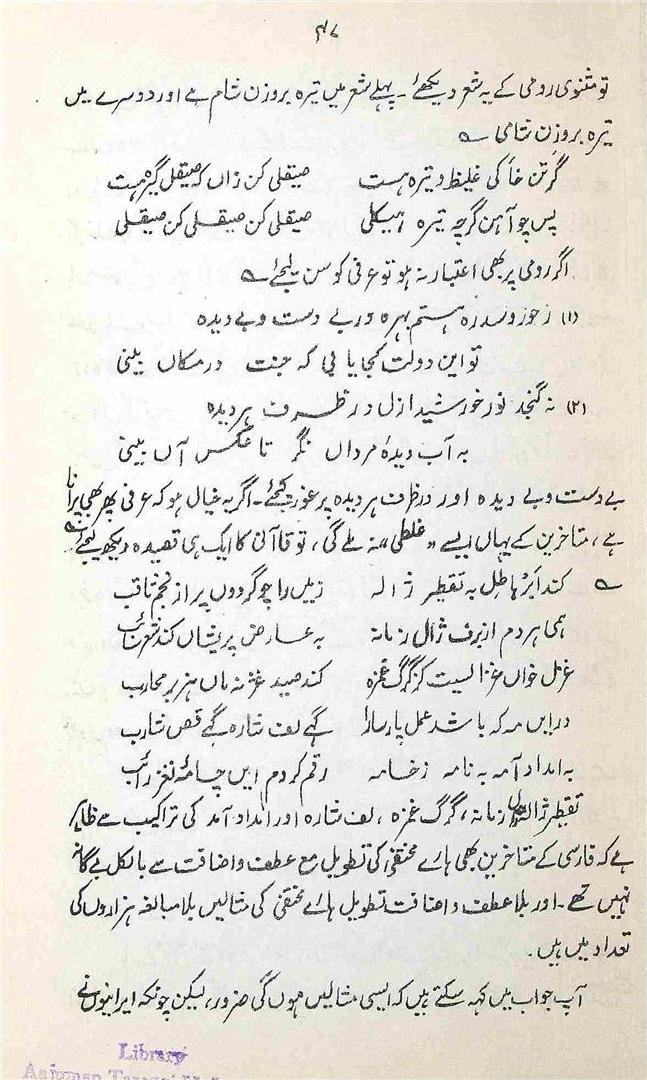 ۴۷
تو مثنوی رومی کے یہ شعر دیکھئے ۔ پہلے شعر میں تیرہ بروزن شام ہے اور دوسرے میں
تیرہ بروزن شامی ؎
گر تن خاکی غلیظ و تیرہ است صیقلی کن زاں کہ صیقل گیرہ است
پس چو آہن گرچہ تیرہ ہیکلی صیقلی کن صیقلی کن صیقلی
اگر رومی پر بھی اعتبار نہ ہو تو عرفی کو سن لیجئے ؎
(۱) ز حوز و سدرہ ہستم بہرہ ور بے دست و بے دیدہ
تو ایں دولت کجا یابی کہ جنت در مکاں بینی
(۲) نہ گنجد نور خورشید ازل در ظرف ہر دیدہ
بہ آب دیدۂ مرداں نگر تا عکس آں بینی
بے دست و بے دیدہ اور در ظرف ہر دیدہ پر غور کیجئے ۔ اگر یہ خیال ہو کہ عرفی پھر بھی پرانا
ہے، متاخرین کے یہاں ایسے "غلطی" نہ ملے گی، تو قاآنی کا ایک ہی قصیدہ دیکھ لیجئے
؎ کند ابر ہاطل بہ تقطیر ژالہ زمیں را چو گردوں پر از نجم ثاقب
ہمی ہر دم از برف ژال زمانہ بہ عارض پریشاں کند شعر شائب
غزل خواں غزالیست کز گرگ غمزہ کند صید غژنہ ماں ہزبر محارب
در ایں مہ کہ باشد عمل پارسا را گہے لعف شارہ گہے قص شارب
بہ امداد آمہ بہ نامہ ز خامہ رقم کردم ایں چامۂ نغز رائب
تقطیر ژالہ، ژال زمانہ، گرگ غمزہ، لعف شارہ اور امداد آمہ کی تراکیب سے ظاہر
ہے کہ فارسی کے متاخرین بھی ہائے مختفی کی تطویل مع عطف و اضافت سے بالکل بے گانہ
نہیں تھے ۔ اور بلا عطف و اضافت تطویل ہائے مختفی کی مثالیں بلا مبالغہ ہزاروں کی
تعداد میں ہیں ۔
آپ جواب میں کہہ سکتے ہیں کہ ایسی مثالیں ہوں گی ضرور، لیکن چونکہ ایرانیوں نے
Library